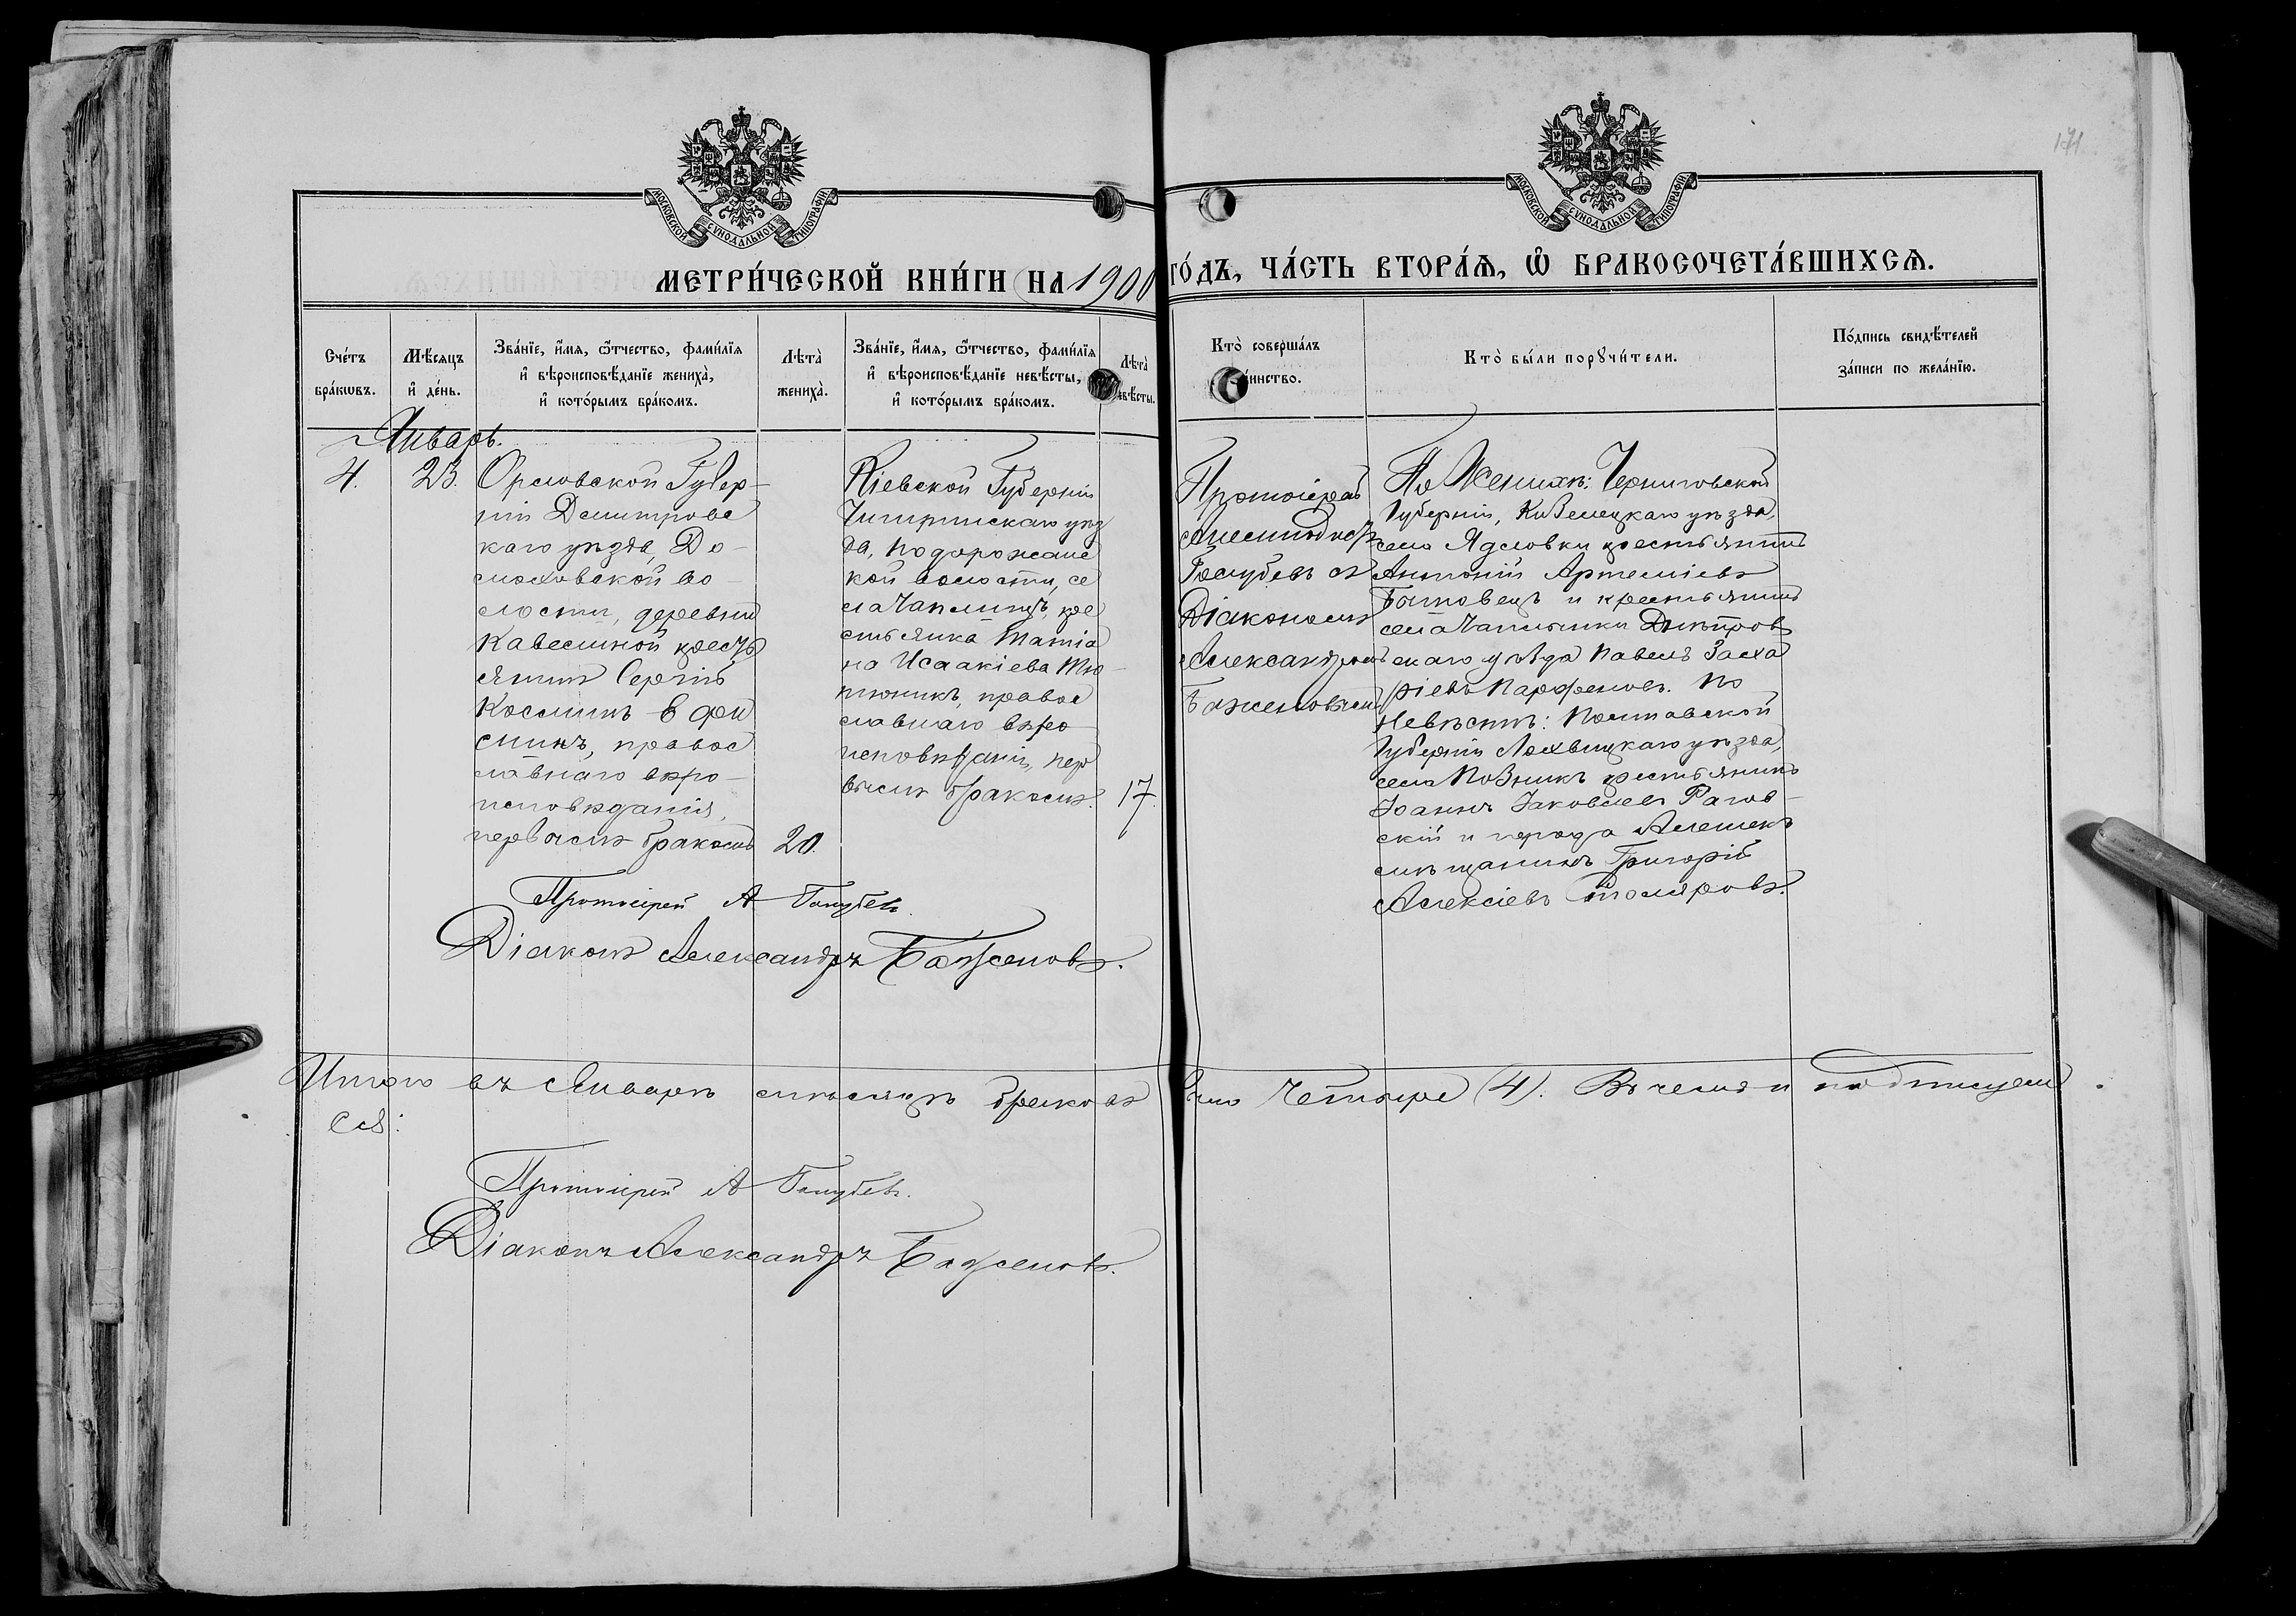 171
МОСКОВСКОЙ СѴНОДАЛЬНОЙ ТИПОГРАФІИ
МОСКОВСКОЙ СѴНОДАЛЬНОЙ ТИПОГРАФІИ
МЕТРИ́ЧЕСКОЙ КНИ́ГИ НА 1900 ГО́ДЪ, ЧА́СТЬ ВТОРА́Я, Ѡ БРАКОСОЧЕТА́ВШИХСЯ.
Сче́тъ
бра́кѡвъ.
Мѣ́сяцъ
и҆ де́нь.
Зва́нїе, и҆́мя, ѻ҆́тчество, фами́лїя
и҆ вѣроисповѣ́данїе жениха̀,
и҆ кото́рымъ бра́комъ.
Лѣта̀
жениха̀.
Зва́нїе, и҆́мя, ѻ҆́тчество, фами́лїя
и҆ вѣроисповѣ́данїе невѣ́сты,
и҆ кото́рымъ бра́комъ.
Лѣта̀
евѣ́сты.
Кто̀ соверша́лъ
инство.
Кто̀ бы́ли порꙋчи́тели.
По́дпись свидѣ́телей
за́писи по жела́нїю.
Январь.
4.
23.
Орловской Губер-
ніи Дмитровс
каго уѣзда, До-
лховской во-
лости, деревни
кресть
янинъ Сергій
Космин
, правос
лавнаго вѣро-
исповѣданія,
первымъ бракомъ
20.
Кіевской Губерніи
Чигиринскаго уѣз
да, Подорожанс
кой волости, се
ла Чаплищъ, кре
стьянка Татіа
на Исаакіева Тю-
тюникъ, правос
лавнаго вѣро-
исповѣданія, пер
вымъ бракомъ.
17.
Протоіерей
Голубевъ съ
Діакономъ
Александромъ
Баженовымъ
По Женихѣ: Черниговской
Губерніи, Козелецкаго уѣзда,
села Ядловки крестьянинъ
Антоній Артеміевъ
и крестьянинъ
села Чаплынки Днѣпров
скаго уѣзда Павелъ Заха
ріевъ Парфеновъ. По
Невѣстѣ: Полтавской
Губерніи Лохвицкаго уѣзда,
села Позникъ крестьянинъ
Іоаннъ Іаковлевъ Рагов-
скій и города Алешекъ
мѣщанинъ Григорій
Алексіевъ Столяровъ.
Протоіерей А Голубевъ.
Діаконъ Александръ Баженовъ.
Итого въ Январѣ мѣсяцѣ браковъ было Четыре (4). Въ чемъ и подписуем
ся:
Протоіерей А Голубевъ.
Діаконъ Александръ Баженовъ.